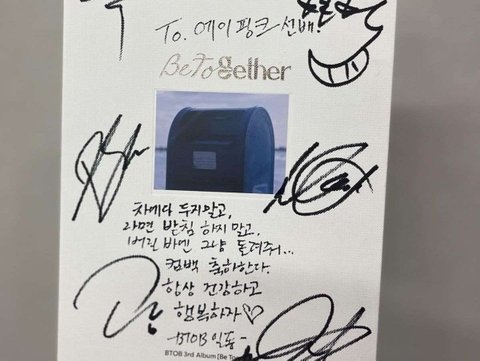 To. 에이핑크 선배!
Be Together
차에다 두지말고,
라면 받침 하지 말고,
버릴 바엔 그냥 돌려줘...
컴백 축하한다.
항상 건강하고
행복하자♡
-BTOB 일동-
BTOB 3rd Album [Be To